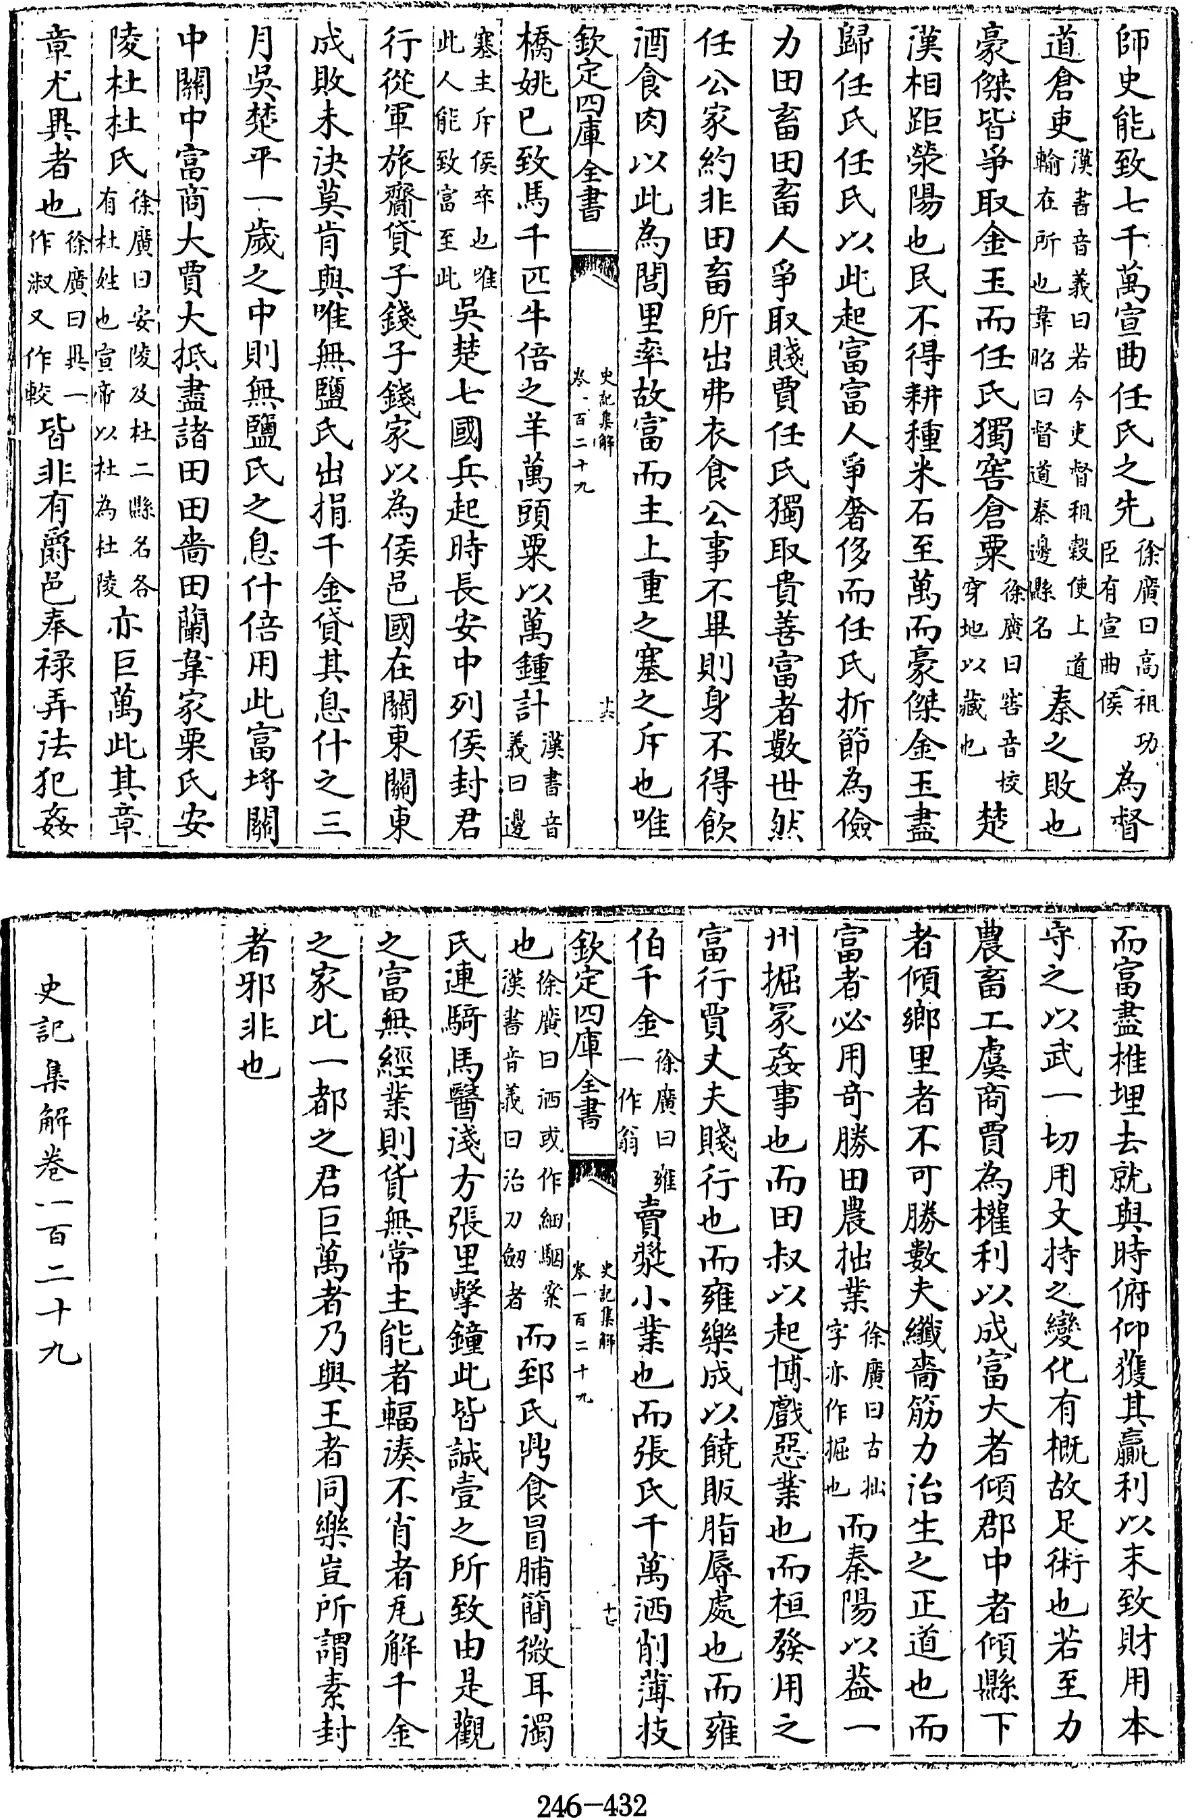 師史能致七千萬宣曲任氏之先徐廣曰高祖功臣有宣曲侯為督
道倉吏漢書音義曰若今吏督租穀使上道輸在所也韋昭曰督道秦邊縣名秦之敗也
豪傑皆爭取金玉而任氏獨窖倉粟徐廣曰窖音校穿地以藏也楚
漢相距滎陽也民不得耕種米石至萬而豪傑金玉盡
歸任氏任氏以此起富富人爭奢侈而任氏折節為儉
力田畜田畜人爭取賤賈任氏獨取貴善富者數世然
任公家約非田畜所出弗衣食公事不畢則身不得飲
酒食肉以此為閭里率故富而主上重之塞之斥也唯
欽定四庫全書 史記集解 卷一百二十九 十六
橋姚已致馬千匹牛倍之羊萬頭粟以萬鍾計漢書音義曰邊
塞主斥侯卒也唯此人能致富至此吳楚七國兵起時長安中列侯封君
行從軍旅齎貸子錢子錢家以為侯邑國在關東關東
成敗未決莫肯與唯無鹽氏出捐千金貸其息什之三
月吳楚平一歲之中則無鹽氏之息什倍用此富埒關
中關中富商大賈大抵盡諸田田嗇田蘭韋家栗氏安
陵杜杜氏徐廣曰安陵及杜二縣名各有杜姓也宣帝以杜為杜陵亦巨萬此其章
章尤異者也徐廣曰異一作淑又作較皆非有爵邑奉祿弄法犯姦
而富盡椎埋去就與時俯仰獲其贏利以末致財用本
守之以武一切用文持之變化有概故足術也若至力
農畜工虞商賈為權利以成富大者傾郡中者傾縣下
者傾鄉里者不可勝數夫纖嗇筋力治生之正道也而
富者必用奇勝田農拙業徐廣曰古拙字亦作掘也而秦陽以葢一
州掘冢姦事也而田叔以起博戲惡業也而桓發用之
富行賈丈夫賤行也而雍樂成以饒販脂辱處也而雍
伯千金徐廣曰雍一作翁賣漿小業也而張氏千萬洒削薄技
欽定四庫全書 史記集解 卷一百二十九 十七
也徐廣曰洒或作細駰案漢書音義曰治刀劒者而郅氏鼎食冒脯簡微耳濁
氏連騎馬醫淺方張里擊鐘此皆誠壹之所致由是觀
之富無經業則貨無常主能者輻湊不肖者瓦解千金
之家比一都之君巨萬者乃與王者同樂豈所謂素封
者邪非也
史記集解卷一百二十九
246-432